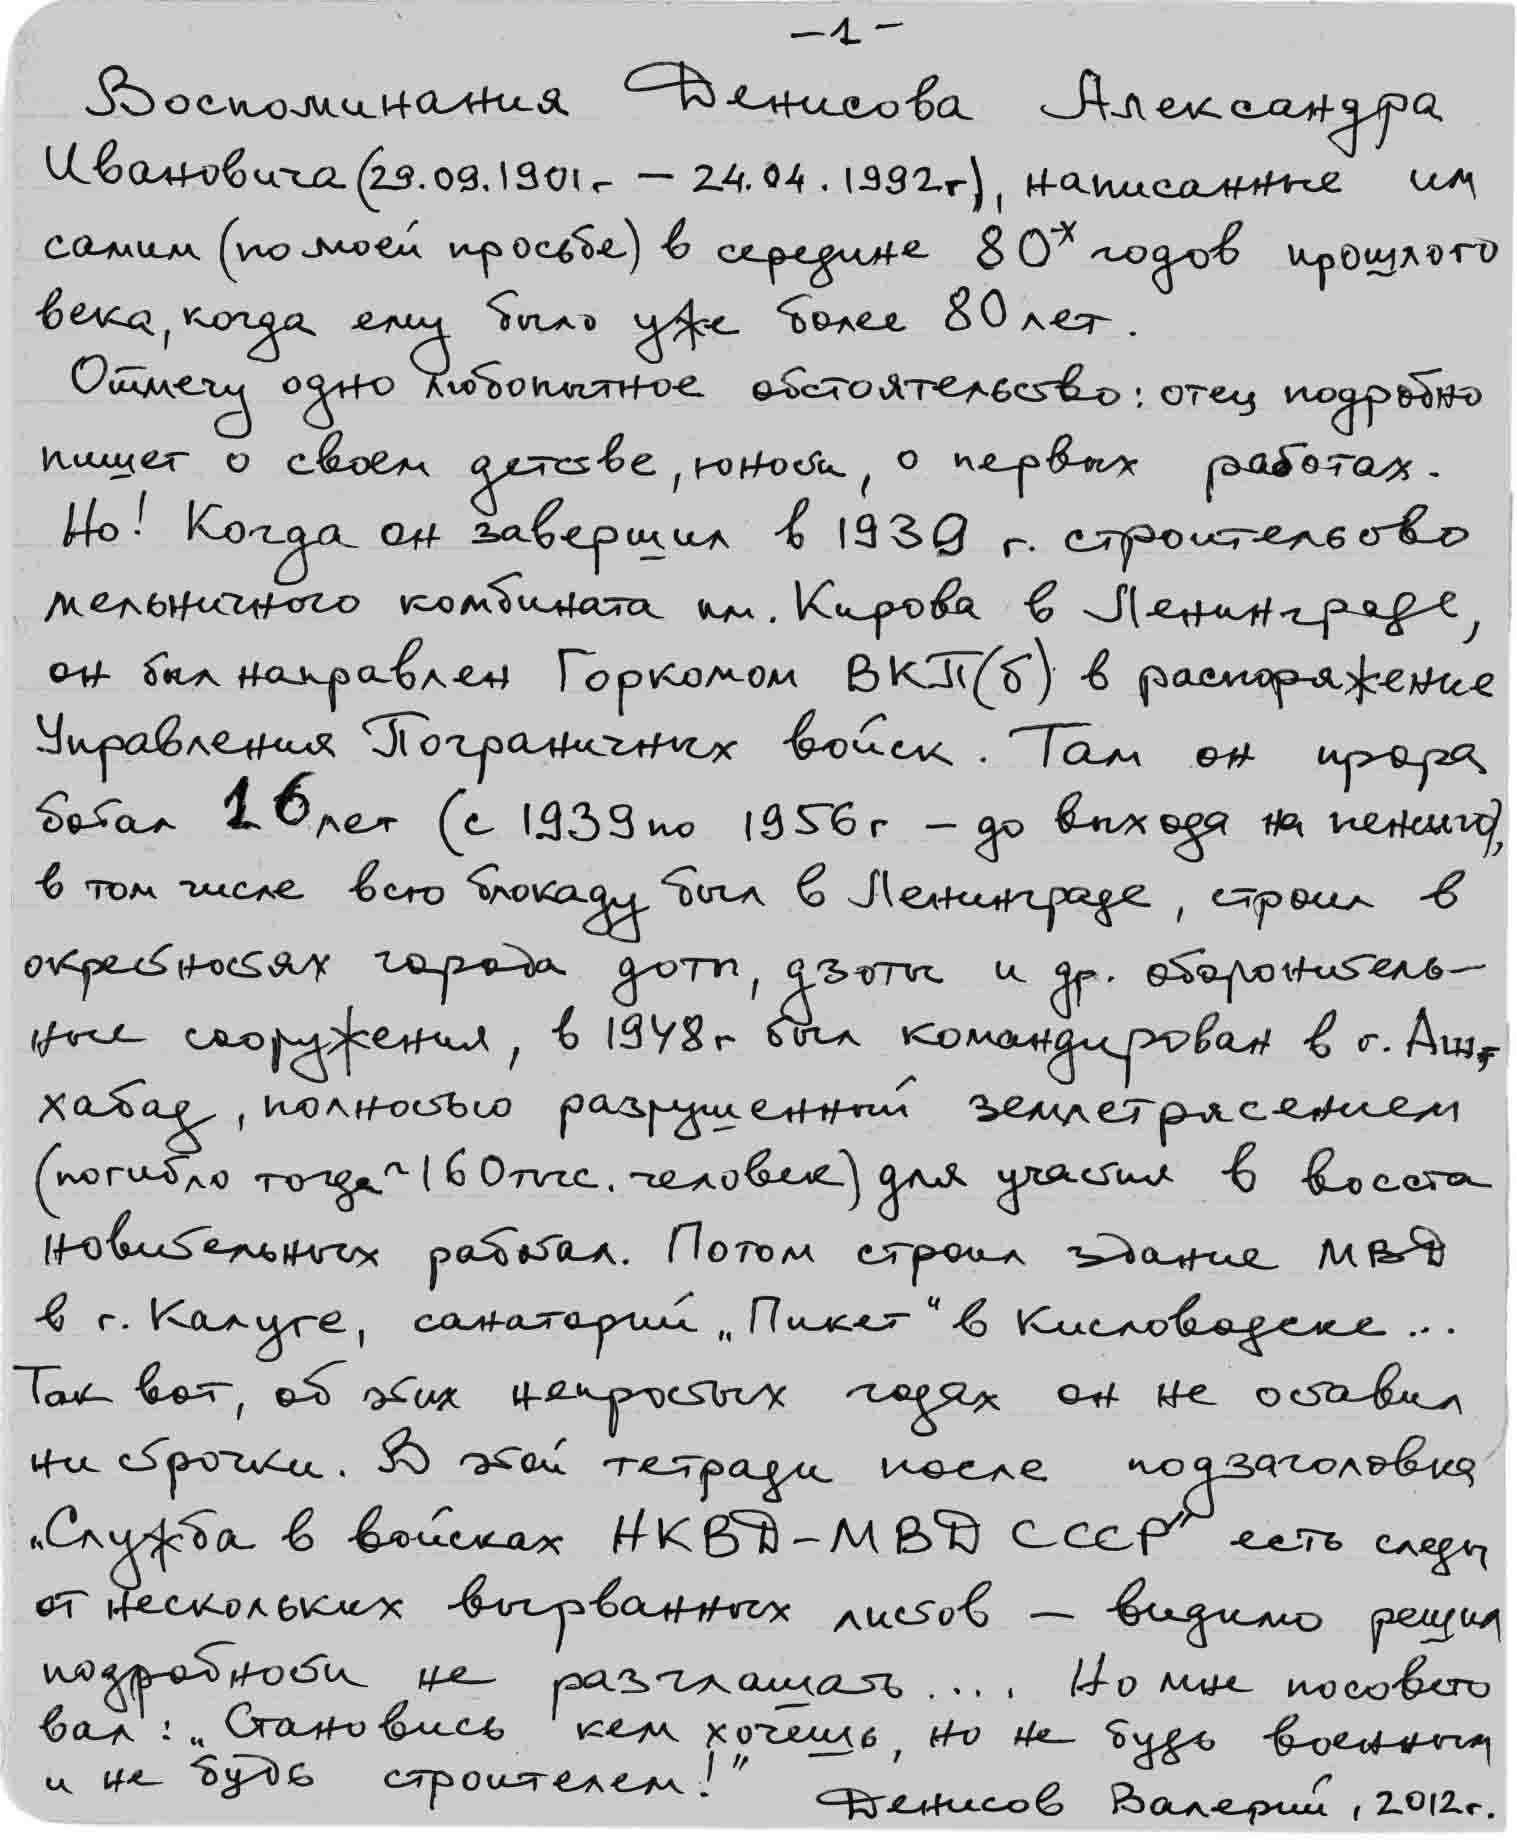 -1-
Воспоминания Денисова Александра
Ивановича (29.09.1901г - 24.04.1992г), написанные им
самим (по моей просьбе) в середине 80-х годов прошлого
века, когда ему было уже более 80 лет.
Отмечу одно любопытное обстоятельство: отец подробно
пишет о своем детстве, юности, о первых работах.
Но! Когда он завершил в 1939 г. строительсво
мельничного комбината им. Кирова в Ленинграде,
он был направлен Горкомом ВКП(б) в распоряжение
Управления Пограничных войск. Там он прора
ботал 16 лет (с 1939 по 1956г - до выхода на пенсию),
в том числе всю блокаду был в Ленинграде, строил в
окрестностях города доты, дзоты и др. оборонитель-
ные сооружения, в 1948г был командирован в г. Аш-
хабад, полностью разрушенный землетрясением
(погибло тогда ~160тыс. человек) для участия в восста
новительных работал. Потом строил здание МВД
в г. Калуге, санаторий „Пикет“ в Кисловодске...
Так вот, об этих непростых годах он не оставил
ни строчки. В этой тетради после подзаголовка
„Служба в войсках НКВД-МВД СССР” есть следы
от нескольких вырванных листов - видимо решил
подробности не разглашать.... Но мне посовето
вал: „Становись кем хочешь, но не будь военным
и не будь строителем!”
Денисов Валерий, 2012г.